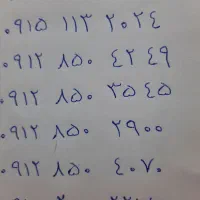 ۰۹۱۵ ۱۱۳ ۲۰۲۴
۰۹۱۲ ۸۵۰ ۴۲۴۹
۰۹۱۲ ۸۵۰ ۳۵۴۵
۰۹۱۲ ۸۵۰ ۲۹۰۰
۰۹۱۲ ۸۵۰ ۴۰۷۰